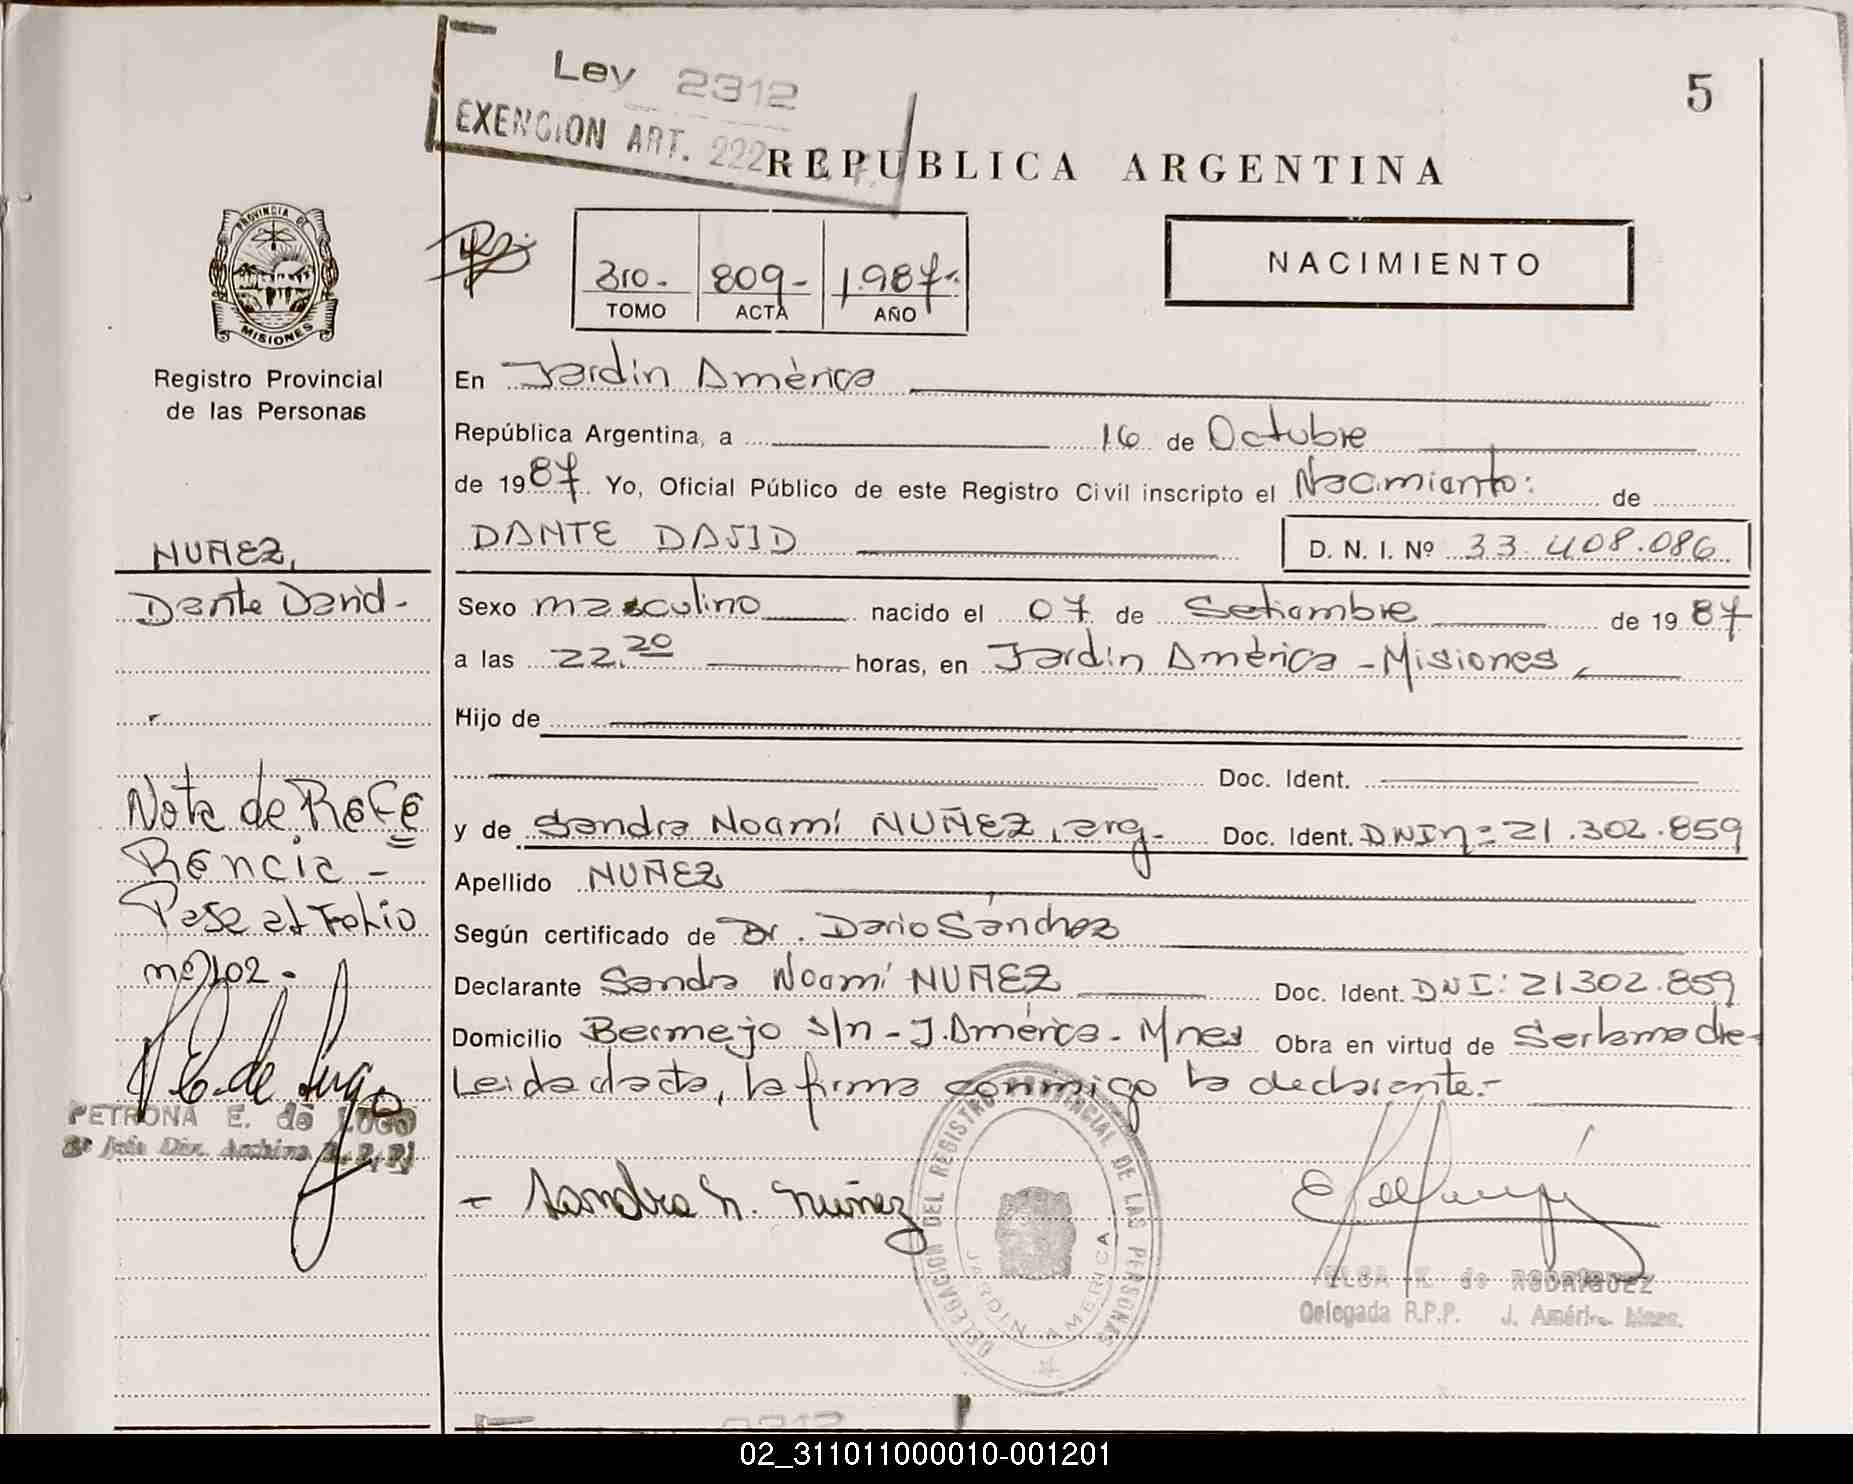 Ley 2312
5
EXENCION ART. 222
REPUBLICA ARGENTINA
PROVINCIA DE
MISIONES
3ro.- 809- 1.987.-
TOMO ACTA AÑO
NACIMIENTO
Registro Provincial
de las Personas
En Jardin Amèrica
República Argentina, a 16 de Octubre
de 1987. Yo, Oficial Público de este Registro Civil inscripto el Nacimiento: de
DANTE DAVID D. N. I. Nº 33.408.086
NUÑEZ,
Dante David-
Sexo masculino nacido el 07 de Setiembre de 1987
a las 22.20 horas, en Jardin Amèrica - Misiones,
Hijo de
Doc. Ident.
y de Sandra Noemí NUÑEZ, arg.- Doc. Ident. DNInº 21.302.859
Apellido NUÑEZ
Según certificado de Dr. Dario Sánchez
Declarante Sandra Noemí NUÑEZ Doc. Ident. DNI: 21302.859
Domicilio Bermejo s/n - J. América - Mnes Obra en virtud de Ser la madre-
Leida el acta, la firma conmigo la declarante.-
Nota de Refe
Rencia -
Pase al Folio
nº 102.
P E. de Lugo
PETRONA E. de LUGO
Sandra N. Nuñez
DELEGACION DEL REGISTRO PROVINCIAL DE LAS PERSONAS
JARDIN AMERICA
ELSA K. de RODRIGUEZ
Delegada R.P.P. J. América Mnes.
2312
02_311011000010-001201